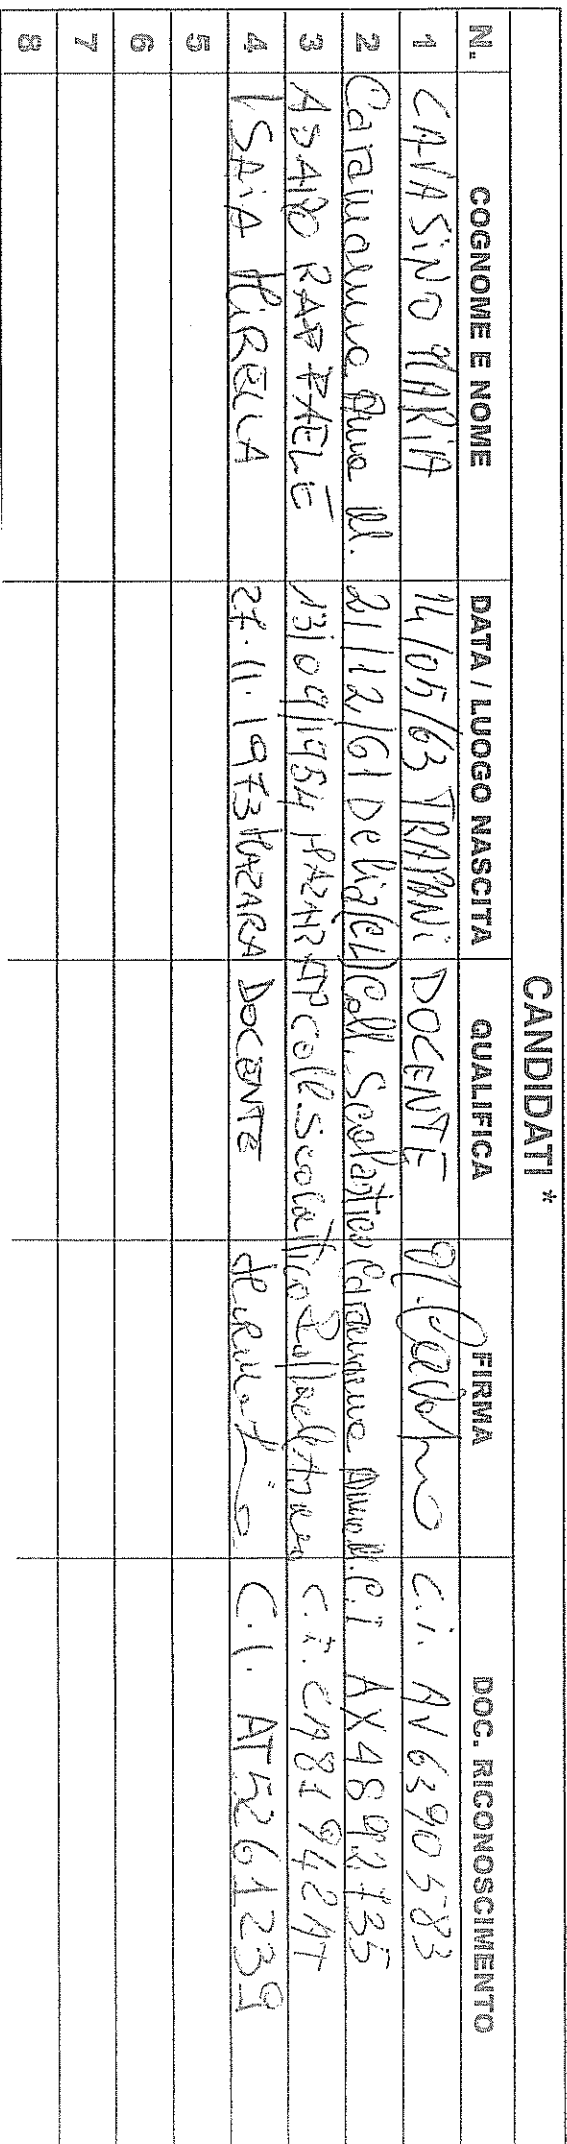 CANDIDATI *
N. COGNOME E NOME DATA / LUOGO NASCITA QUALIFICA FIRMA DOC. RICONOSCIMENTO
1 CAVASiNO MARiA 14/05/63 TRAPANi DOCENTE C.i. AV6390583
2 Caramanna Anna M. 21/12/61 Delia (CL) Coll. Scolastico Caramanna Anna M. C.I AX4892735
3 ADAMO RAFFAELE 13/09/1954 MAZARA TP Coll. Scolastico C.I. CA81942AT
4 ISAiA MiRELLA 27.11.1973 MAZARA DOCENTE C.I. AT5261239
5
6
7
8